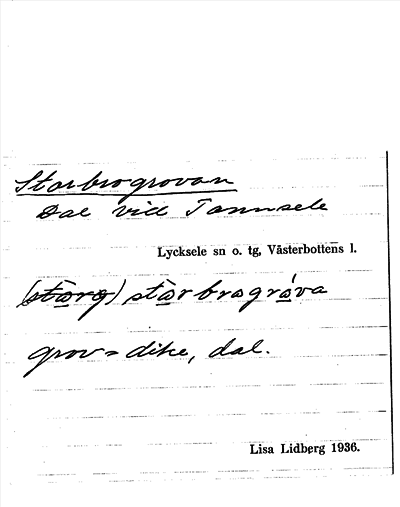 Storbrogrovan
Dal vid Tannsele
Lycksele sn o. tg, Västerbottens l.
stòrbrogrǻva
grov = dike, dal.
Lisa Lidberg 1936.